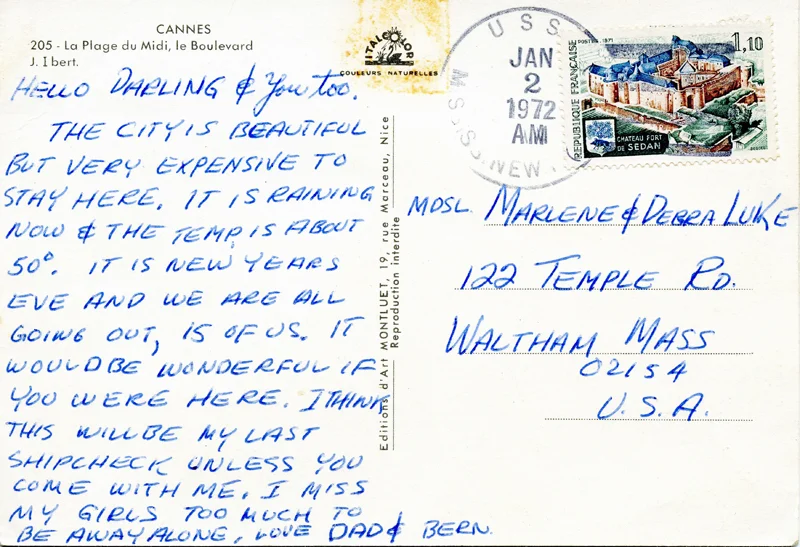 CANNES
205 - La Plage du Midi, le Boulevard
J. Ibert.
ITALCOLOR
COULEURS NATURELLES
HELLO DARLING & You too.
THE CITY IS BEAUTIFUL
BUT VERY EXPENSIVE TO
STAY HERE. IT IS RAINING
NOW & THE TEMP. IS ABOUT
50°. IT IS NEW YEARS
EVE AND WE ARE ALL
GOING OUT, 15 OF US. IT
WOULD BE WONDERFUL IF
YOU WERE HERE. I THINK
THIS WILL BE MY LAST
SHIPCHECK UNLESS YOU
COME WITH ME. I MISS
MY GIRLS TOO MUCH TO
BE AWAY ALONE, LOVE DAD & BERN.
Editions d'Art MONTLUET, 19, rue Marceau, Nice
Reproduction interdite
USS
JAN
2
1972
AM
NEW
POSTES 1971
1,10
REPUBLIQUE FRANÇAISE
CHATEAU FORT
DE SEDAN
MARLENE & DEBRA LUKE
122 TEMPLE RD.
WALTHAM MASS
02154
U.S.A.